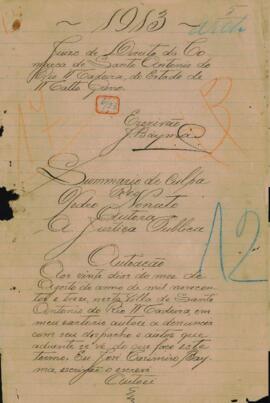 1913
Juizo de Direito da Co
marca de Santo Antonio do
Rio Madeira, do Estado de
Matto Grosso
Escrivão
J Bayma
Summario de Culpa
Réo
Pedro Nonato
Autora
A Justiça Publica
Autoação
Aos vinte dias do mez de
Agosto do anno de mil novecen
tos e treze, nesta Villa de Santo
Antonio do Rio Madeira, em
meu cartorio autoei a denuncia
com seu despacho e autos que
adiante se vê, do que faço este
termo. Eu José Casimiro Bay
ma, escrivão o escrevi
12